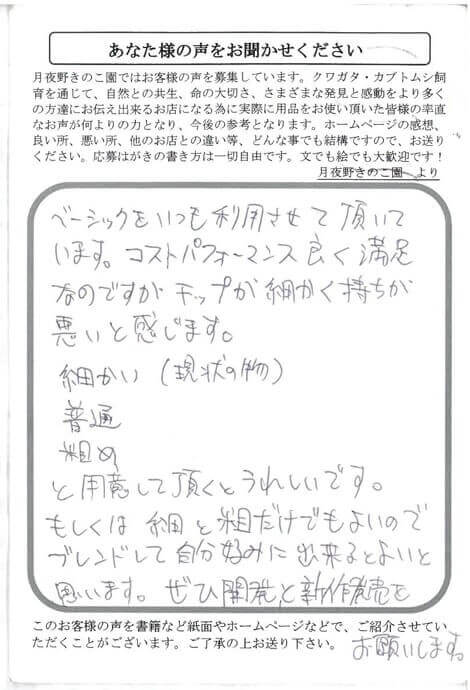 あなた様の声をお聞かせください
月夜野きのこ園ではお客様の声を募集しています。クワガタ・カブトムシ飼
育を通じて、自然との共生、命の大切さ、さまざまな発見と感動をより多く
の方達にお伝え出来るお店になる為に実際に用品をお使い頂いた皆様の率直
なお声が何よりの力となり、今後の参考となります。ホームページの感想、
良い所、悪い所、他のお店との違い等、どんな事でも結構ですので、お送り
ください。応募はがきの書き方は一切自由です。文でも絵でも大歓迎です！
月夜野きのこ園 より
ベーシックをいつも利用させて頂いて
います。コストパフォーマンス良く満足
なのですがチップが細かく持ちが
悪いと感じます。
細かい（現状の物）
普通
粗め
と用意して頂くとうれしいです。
もしくは 細と粗だけでもよいので
ブレンドして自分好みに出来るとよいと
思います。ぜひ開発と新作発売を
お願いします。
このお客様の声を書籍など紙面やホームページなどで、ご紹介させてい
ただくことがございます。ご了承の上お送り下さい。